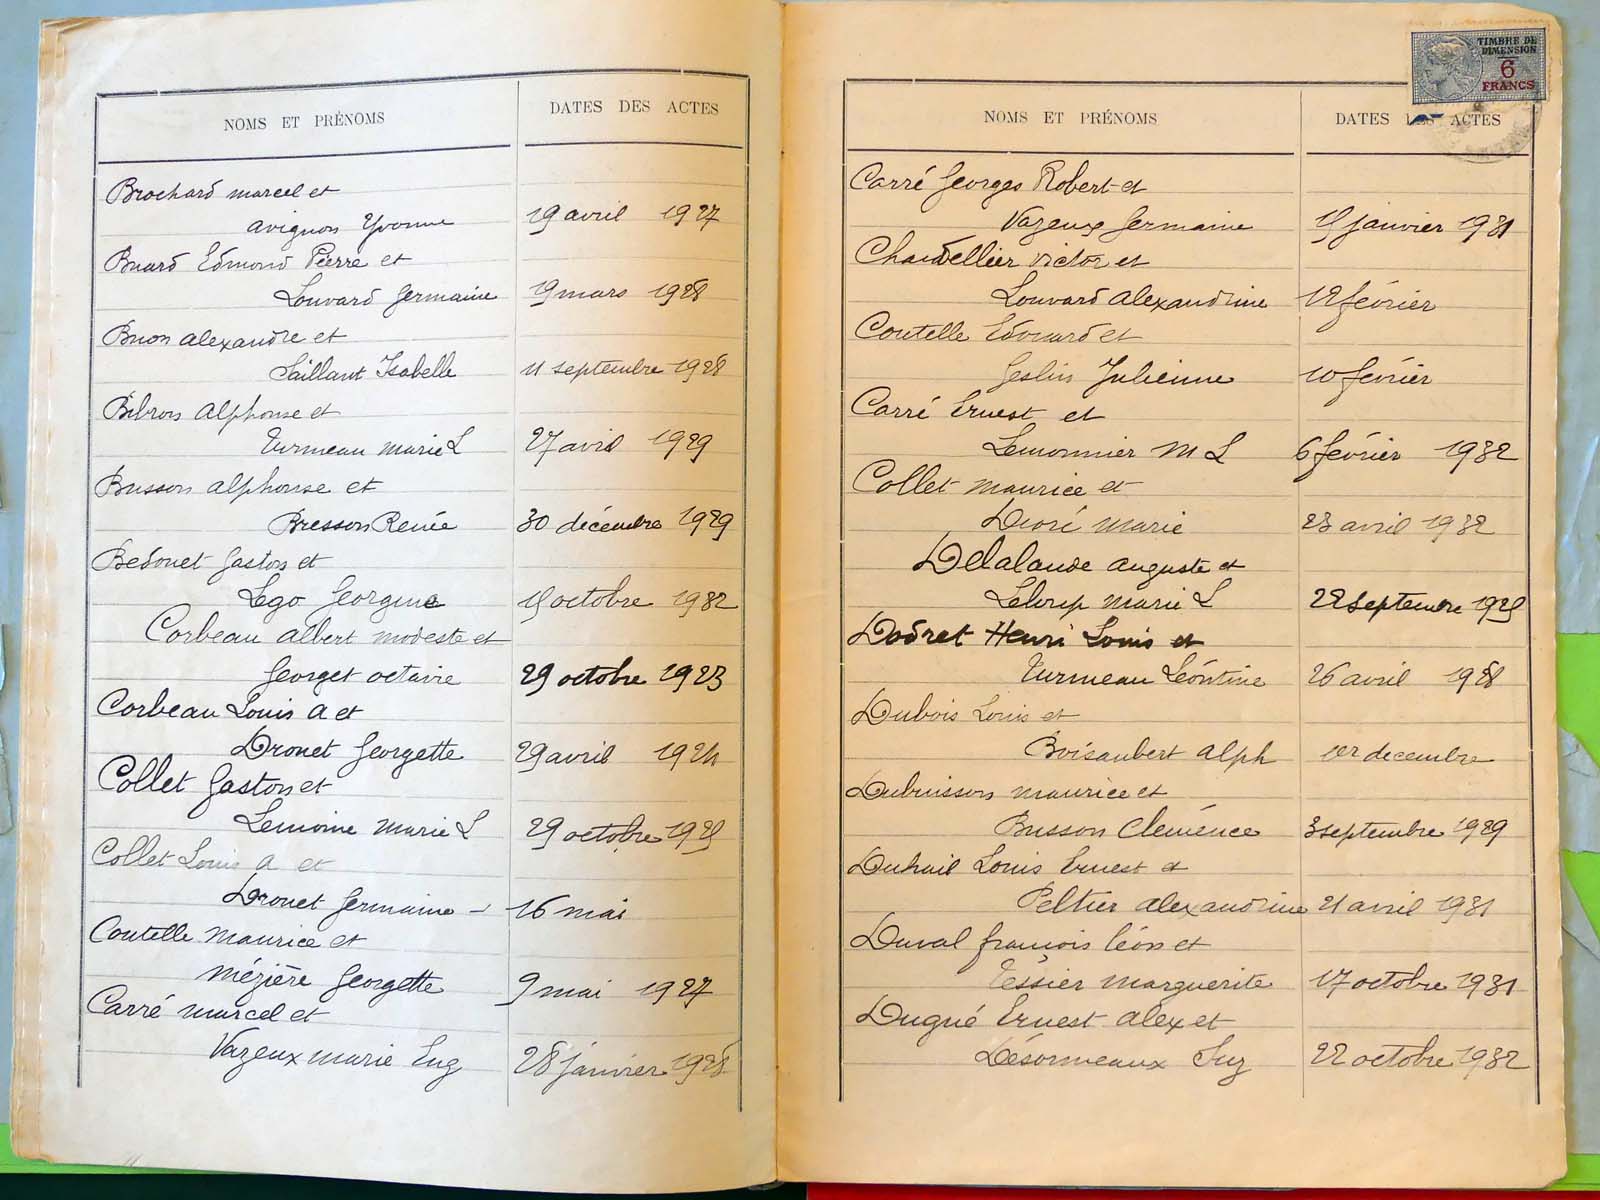 NOMS ET PRÉNOMS DATES DES ACTES
Brochard marcel et
avignon Yvonne 19 avril 1927
Buard Edmond Pierre et
Louvard Germaine 19 mars 1928
Buon alexandre et
Saillant Isabelle 11 septembre 1928
Bibron alphonse et
Turmeau marie L 27 avril 1929
Busson alphonse et
Bresson Renée 30 décembre 1929
Bedouet Gaston et
Lego Georgine 15 octobre 1932
Corbeau albert modeste et
Georget octavie 29 octobre 1923
Corbeau Louis A et
Drouet Georgette 29 avril 1924
Collet Gaston et
Lemoine Marie L 29 octobre 1925
Collet Louis A et
Drouet Germaine - 16 mai
Coutelle Maurice et
Mézière Georgette 9 mai 1927
Carré marcel et
Vazeux marie Eug 28 janvier 1928
TIMBRE DE
DIMENSION
6
FRANCS
NOMS ET PRÉNOMS DATES DES ACTES
Carré Georges Robert et
Vazeux Germaine 15 janvier 1931
Chandellier victor et
Louvard alexandrine 12 février
Coutelle Edouard et
Geslin Julienne 10 février
Carré Ernest et
Lemonnier M L 6 février 1932
Collet maurice et
Doré Marie 23 avril 1932
Delalande auguste et
Leloup marie L 22 septembre 1925
Dodret Henri Louis et
Turmeau Léontine 26 avril 1928
Dubois Louis et
Boisaubert alph 1er decembre
Dubuisson maurice et
Busson Clemence 3 septembre 1929
Duhail Louis Ernest et
Peltier alexandrine 21 avril 1931
Duval françois léon et
Tessier marguerite 17 octobre 1931
Dugué Ernest alex et
Désormeaux Suz 22 octobre 1932